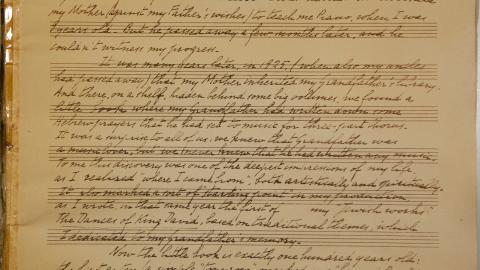 my Mother (against my Father's wishes) to teach me Piano, when I was
years old. But he passed away a few months later, and he
couldn't witness my progress.
It was many years later, in 1925, (when also my uncles
had passed away) that my Mother inherited my grandfather's library.
And there, on a shelf, hidden behind some big volumes, we found a
little book where my Grandfather had written down some
Hebrew prayers that he had set to music for three-part chorus.
It was a surprise to all of us: we knew that grandfather was
a music lover, but we never knew that he had written any music.
To me this discovery was one of the deepest impressions of my life,
as I realized "where I came from", both artistically and spiritually.
It also marked a sort of "starting point" in my production
as I wrote in that same year the first of my "Jewish works":
The Dances of King David, based on traditional themes, which
I dedicated to my grandfather's memory.
Now the little book is exactly one hundred years old: